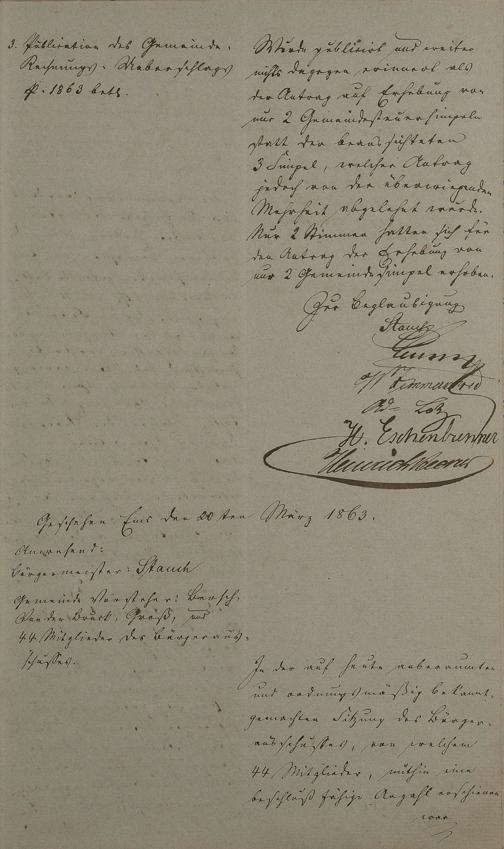 3. Publication des Gemeinde-
Rechnungs-Ueberschlags
p. 1863 betr.
Wurde publicirt und weiter
nichts dagegen erinnert als
der Antrag auf Erhebung von
nur 2 Gemeindesteuersimpeln
statt der beabsichteten
3 Simpel, welcher Antrag
jedoch von der überwiegenden
Mehrheit abgelehnt wurde.
Nur 2 Stimmen hatten sich für
den Antrag der Erhebung von
nur 2 Gemeindesimpel erhoben.
Zur Beglaubigung
Stauch
H. Eschenbrenner
Heinrich
Geschehen Ems den 20ten März 1863.
Anwesend:
Bürgermeister: Stauch
Gemeinde Vorsteher: Bersch,
Von der Bruck, Groß, und
44 Mitglieder des Bürgeraus-
schusses.
In der auf heute anberaumten
und ordnungsmäßig bekannt-
gemachten Sitzung des Bürger-
ausschusses, von welchem
44 Mitglieder, mithin eine
beschlußfähige Anzahl erschienen
war